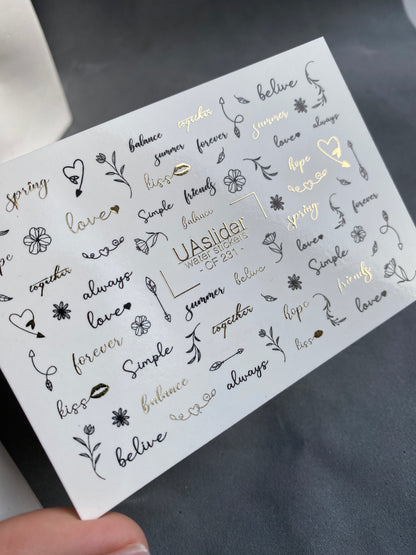 together
belive
balance
summer
forever
summer
always
spring
kiss
love
hope
love
Simple
friends
balance
spring
forever
together
always
love
UAslider
water stickers
CF 231
love
Simple
hope
summer
belive
friends
forever
Simple
together
hope
love
kiss
balance
always
kiss
belive